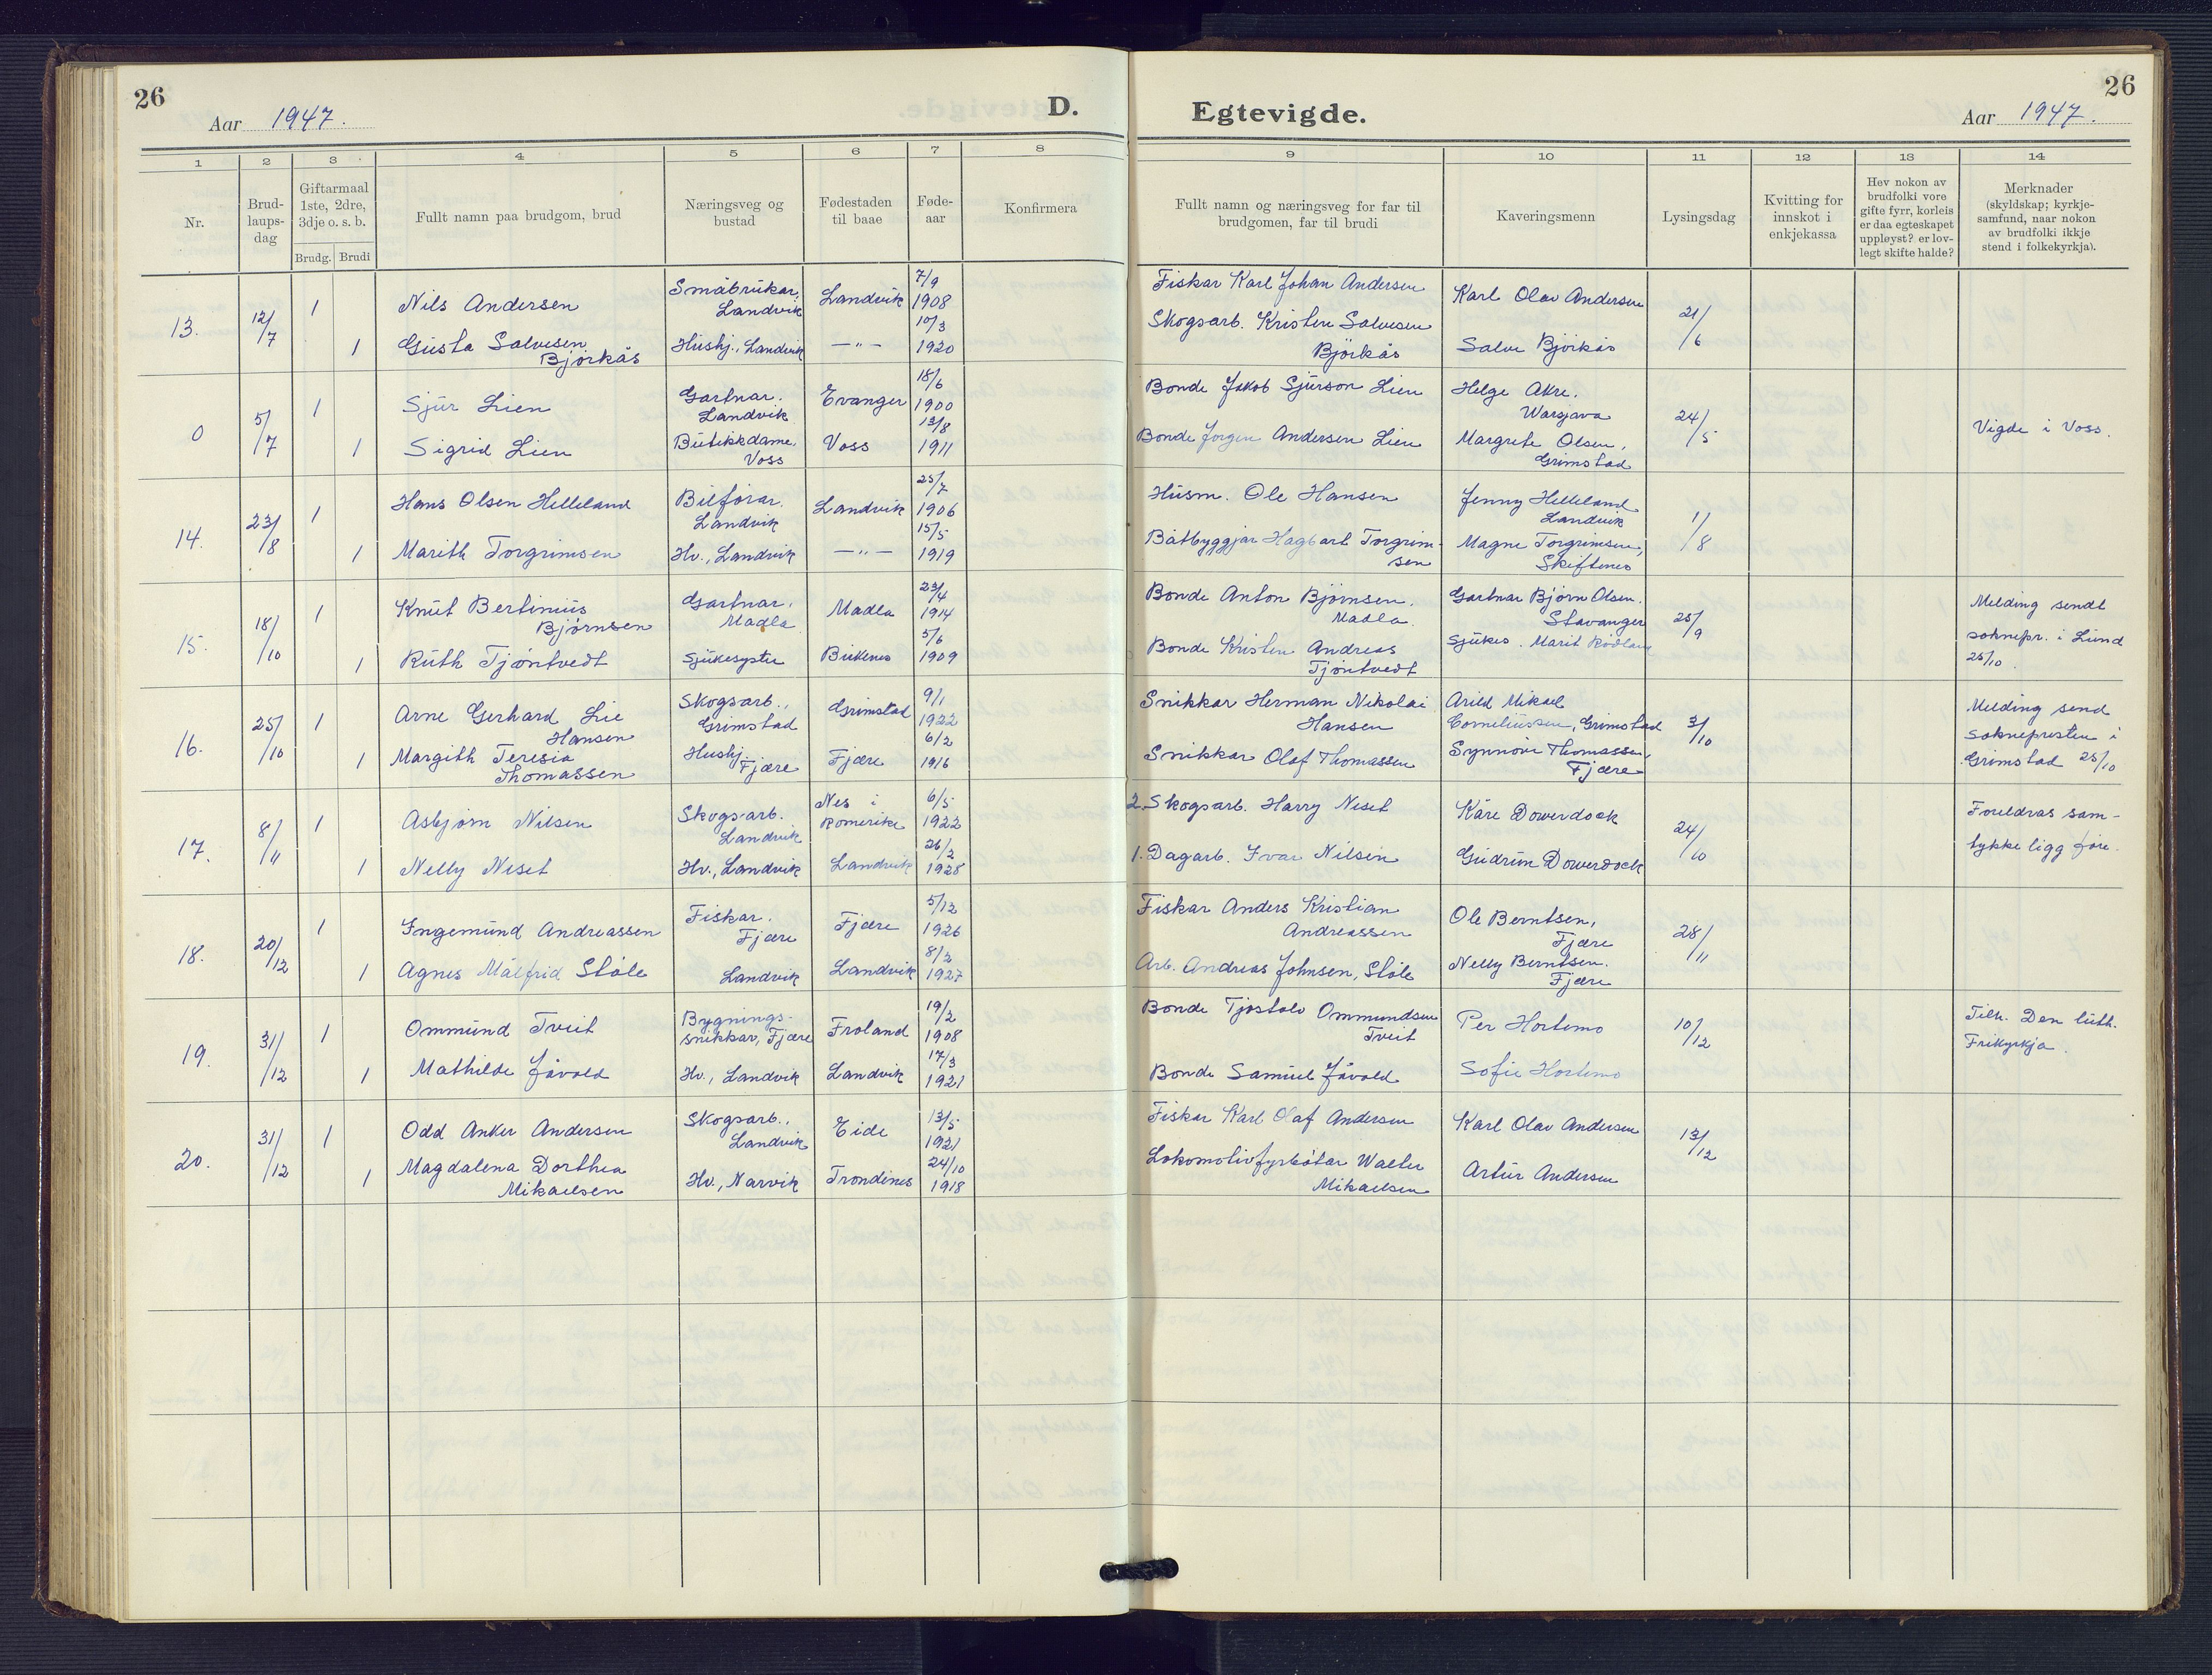 26
Aar 1947.
D.
1 2 3 4 5 6 7 8
Nr.
Brud-
laups-
dag
Giftarmaal
1ste, 2dre,
3dje o. s. b.
Brudg. Brudi
Fullt namn paa brudgom, brud
Næringsveg og
bustad
Fødestaden
til baae
Føde-
aar
Konfirmera
Egtevigde.
26
Aar 1947.
9 10 11 12 13 14
Fullt namn og næringsveg for far til
brudgomen, far til brudi
Kaveringsmenn
Lysingsdag
Kvitting for
innskot i
enkjekassa
Hev nokon av
brudfolki vore
gifte fyrr, korleis
er daa egteskapet
uppløyst? er lov-
legt skifte halde?
Merknader
(skyldskap; kyrkje-
samfund, naar nokon
av brudfolki ikkje
stend i folkekyrkja).
13. 12/7
1 Nils Andersen Småbrukar, Landvik Landvik 7/9 1908
Fiskar Karl Johan Andersen Karl Olav Andersen 21/6
1 Gusta Salvesen Bjørkås Hushj., Landvik —"— 10/3 1920
Skogsarb. Kristen Salvesen Bjørkås Salve Bjørkås
0 5/7
1 Sjur Lien Gartnar. Landvik Evanger 18/6 1900
Bonde Jakob Sjurson Lien Helge Akre. 24/5 Vigde i Voss.
1 Sigrid Lien Butikkdame, Voss Voss 13/8 1911
Bonde Jørgen Andersen Lien Margrete Olsen, Grimstad
14. 23/8
1 Hans Olsen Helleland Bilførar. Landvik Landvik 25/7 1906
Husm. Ole Hansen Jenny Helleland Landvik 1/8
1 Marith Torgrimsen Hv., Landvik —"— 15/5 1919
Båtbyggjar Hagbart Torgrimsen Magne Torgrimsen, Skiftenes
15. 18/10
1 Knut Bertinius Bjørnsen Gartnar. Madla Madla 23/4 1914
Bonde Anton Bjørnsen. Madla. Gartnar Bjørn Olsen. Stavanger 25/9
Melding sendt
soknepr. i Lund
25/10.
1 Ruth Tjøntvedt Sjukesyster Birkenes 5/6 1909
Bonde Kristen Andreas Tjøntvedt Sjukes. Marit Rødland
16. 25/10
1 Arne Gerhard Lie Hansen Skogsarb., Grimstad Grimstad 9/1 1922
Snikkar Herman Nikolai Hansen Arild Mikael Corneliussen, Grimstad 3/10
Melding send
soknepresten i
Grimstad 25/10
1 Margith Teresia Thomassen Hushj. Fjære Fjære 6/2 1916
Snikkar Olaf Thomassen Synnøve Thomassen, Fjære
17. 8/11
1 Asbjørn Nilsen Skogsarb. Landvik Nes i Romerike 6/5 1922
2. Skogsarb. Harry Neset Kåre Dowerdock 24/10
Foreldras sam-
tykke ligg føre.
1 Nelly Neset Hv., Landvik Landvik 26/2 1928
1. Dagarb. Ivar Nilsen Gudrun Dowerdock
18. 20/12
1 Ingemund Andreassen Fiskar. Fjære Fjære 5/12 1926
Fiskar Anders Kristian Andreassen Ole Berntsen, Fjære 28/11
1 Agnes Målfrid Støle Landvik Landvik 8/2 1927
Arb. Andreas Johnsen, Støle Nelly Berntsen. Fjære
19. 31/12
1 Ommund Tveit Bygnings-snikkar, Fjære Froland 19/2 1908
Bonde Tjøstolv Ommundsen Tveit Per Hortemo 10/12
Tilh. Den luth.
Frikyrkja.
1 Mathilde Jåvold Hv., Landvik Landvik 17/3 1921
Bonde Samuel Jåvold Sofie Hortemo
20. 31/12
1 Odd Anker Andersen Skogsarb., Landvik Eide 13/5 1921
Fiskar Karl Olaf Andersen Karl Olav Andersen 13/12
1 Magdalena Dorthea Mikaelsen Hv., Narvik Trondenes 24/10 1918
Lokomotivfyrbøtar Walter Mikaelsen Artur Andersen